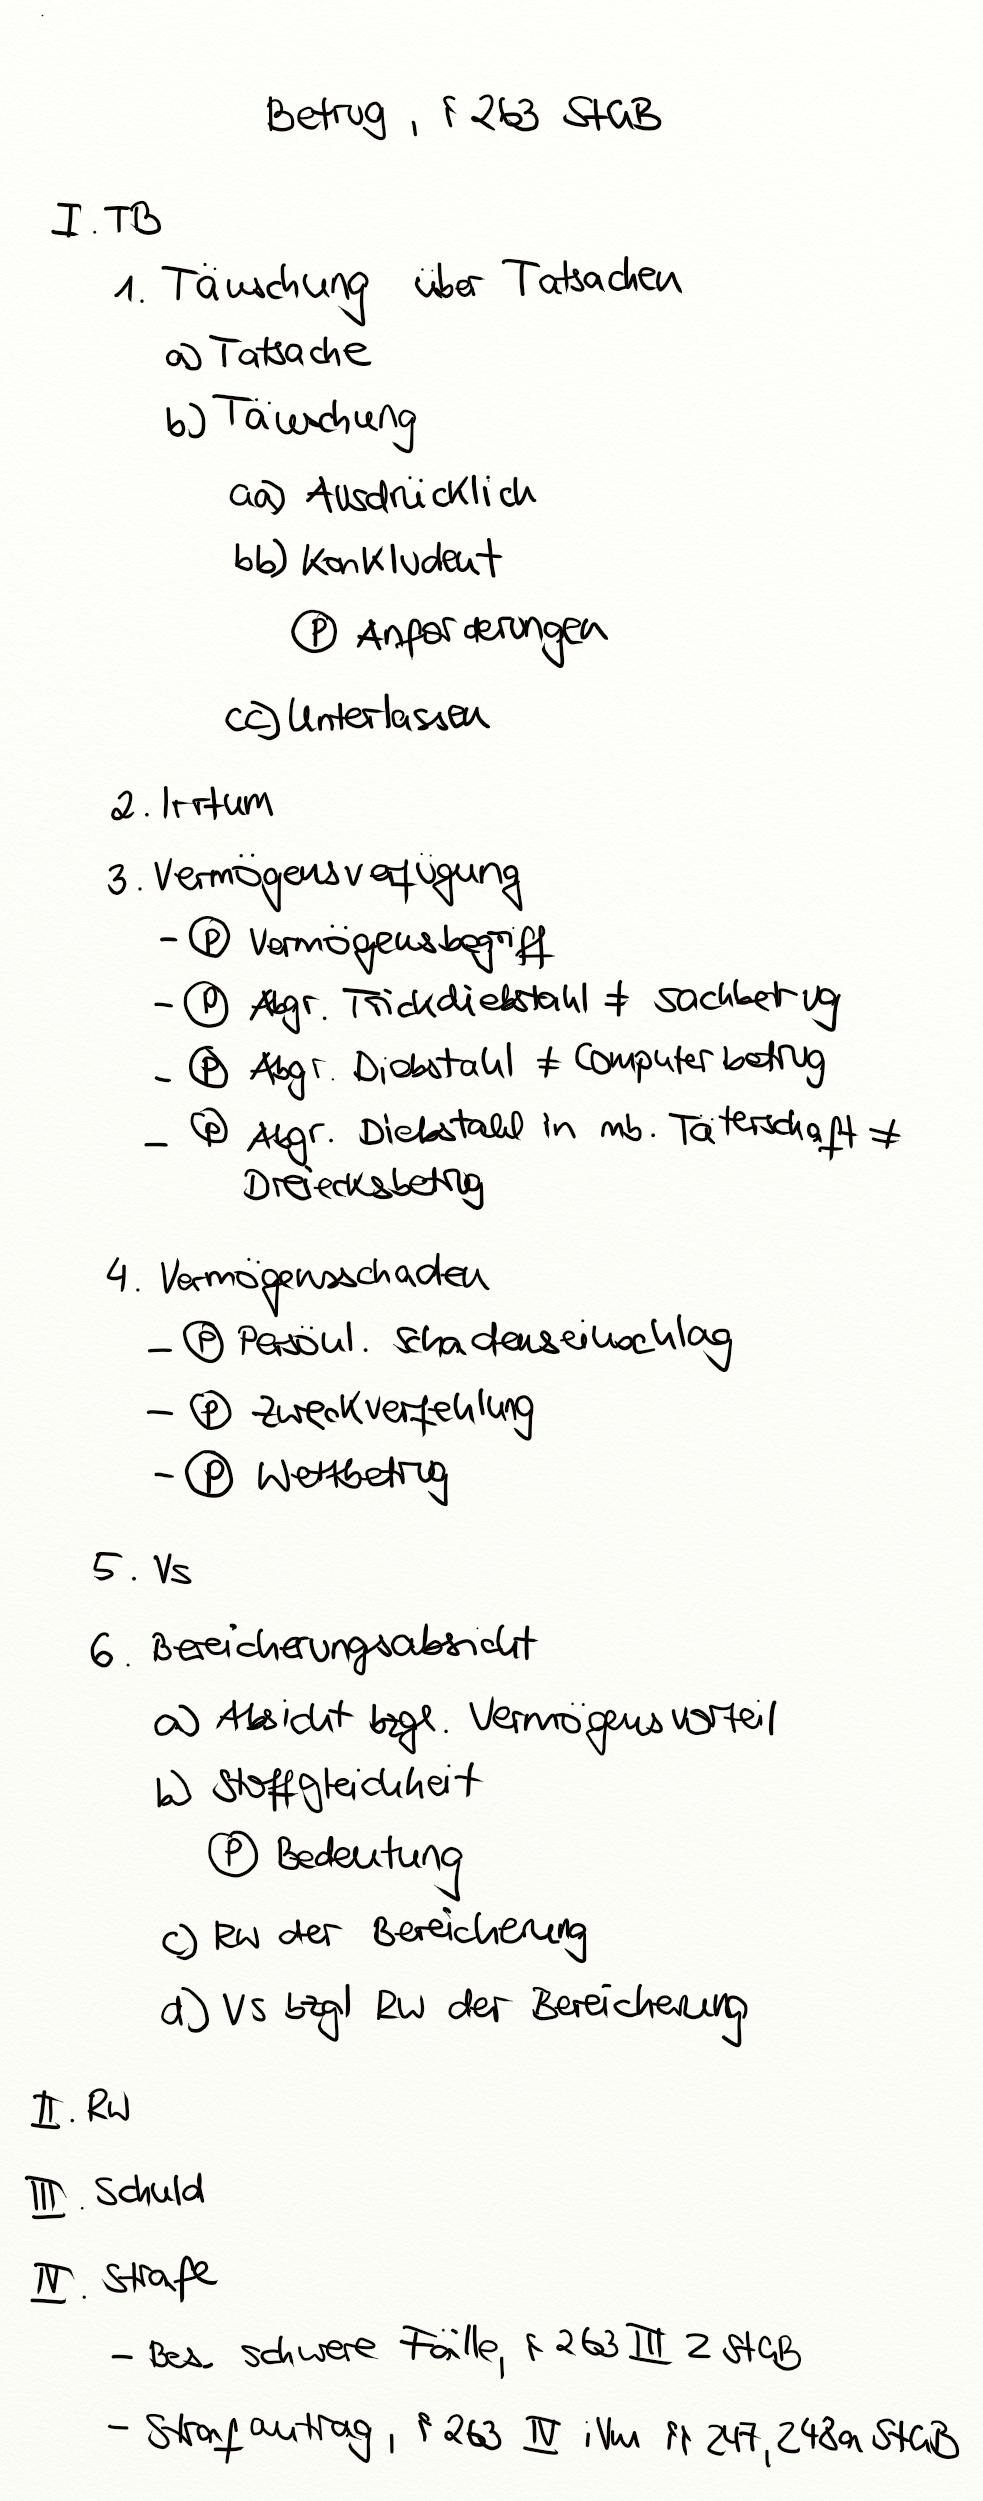 Betrug, § 263 StGB
I. TB
1. Täuschung über Tatsachen
a) Tatsache
b) Täuschung
aa) Ausdrücklich
bb) Konkludent
Ⓟ Anforderungen
cc) Unterlassen
2. Irrtum
3. Vermögensverfügung
- Ⓟ Vermögensbegriff
- Ⓟ Abgr. Trickdiebstahl ≠ Sachbetrug
- Ⓟ Abgr. Diebstahl ≠ Computerbetrug
- Ⓟ Abgr. Diebstahl in mb. Täterschaft ≠
Dreiecksbetrug
4. Vermögensschaden
- Ⓟ Persönl. Schadenseinschlag
- Ⓟ Zweckverfehlung
- Ⓟ Wettbetrug
5. Vs
6. Bereicherungsabsicht
a) Absicht bzgl. Vermögensvorteil
b) Stoffgleichheit
Ⓟ Bedeutung
c) RW der Bereicherung
d) Vs bzgl RW der Bereicherung
II. RW
III. Schuld
IV. Strafe
- Bes. schwere Fälle, § 263 III 2 StGB
- Strafantrag, § 263 IV iVm §§ 247, 248a StGB